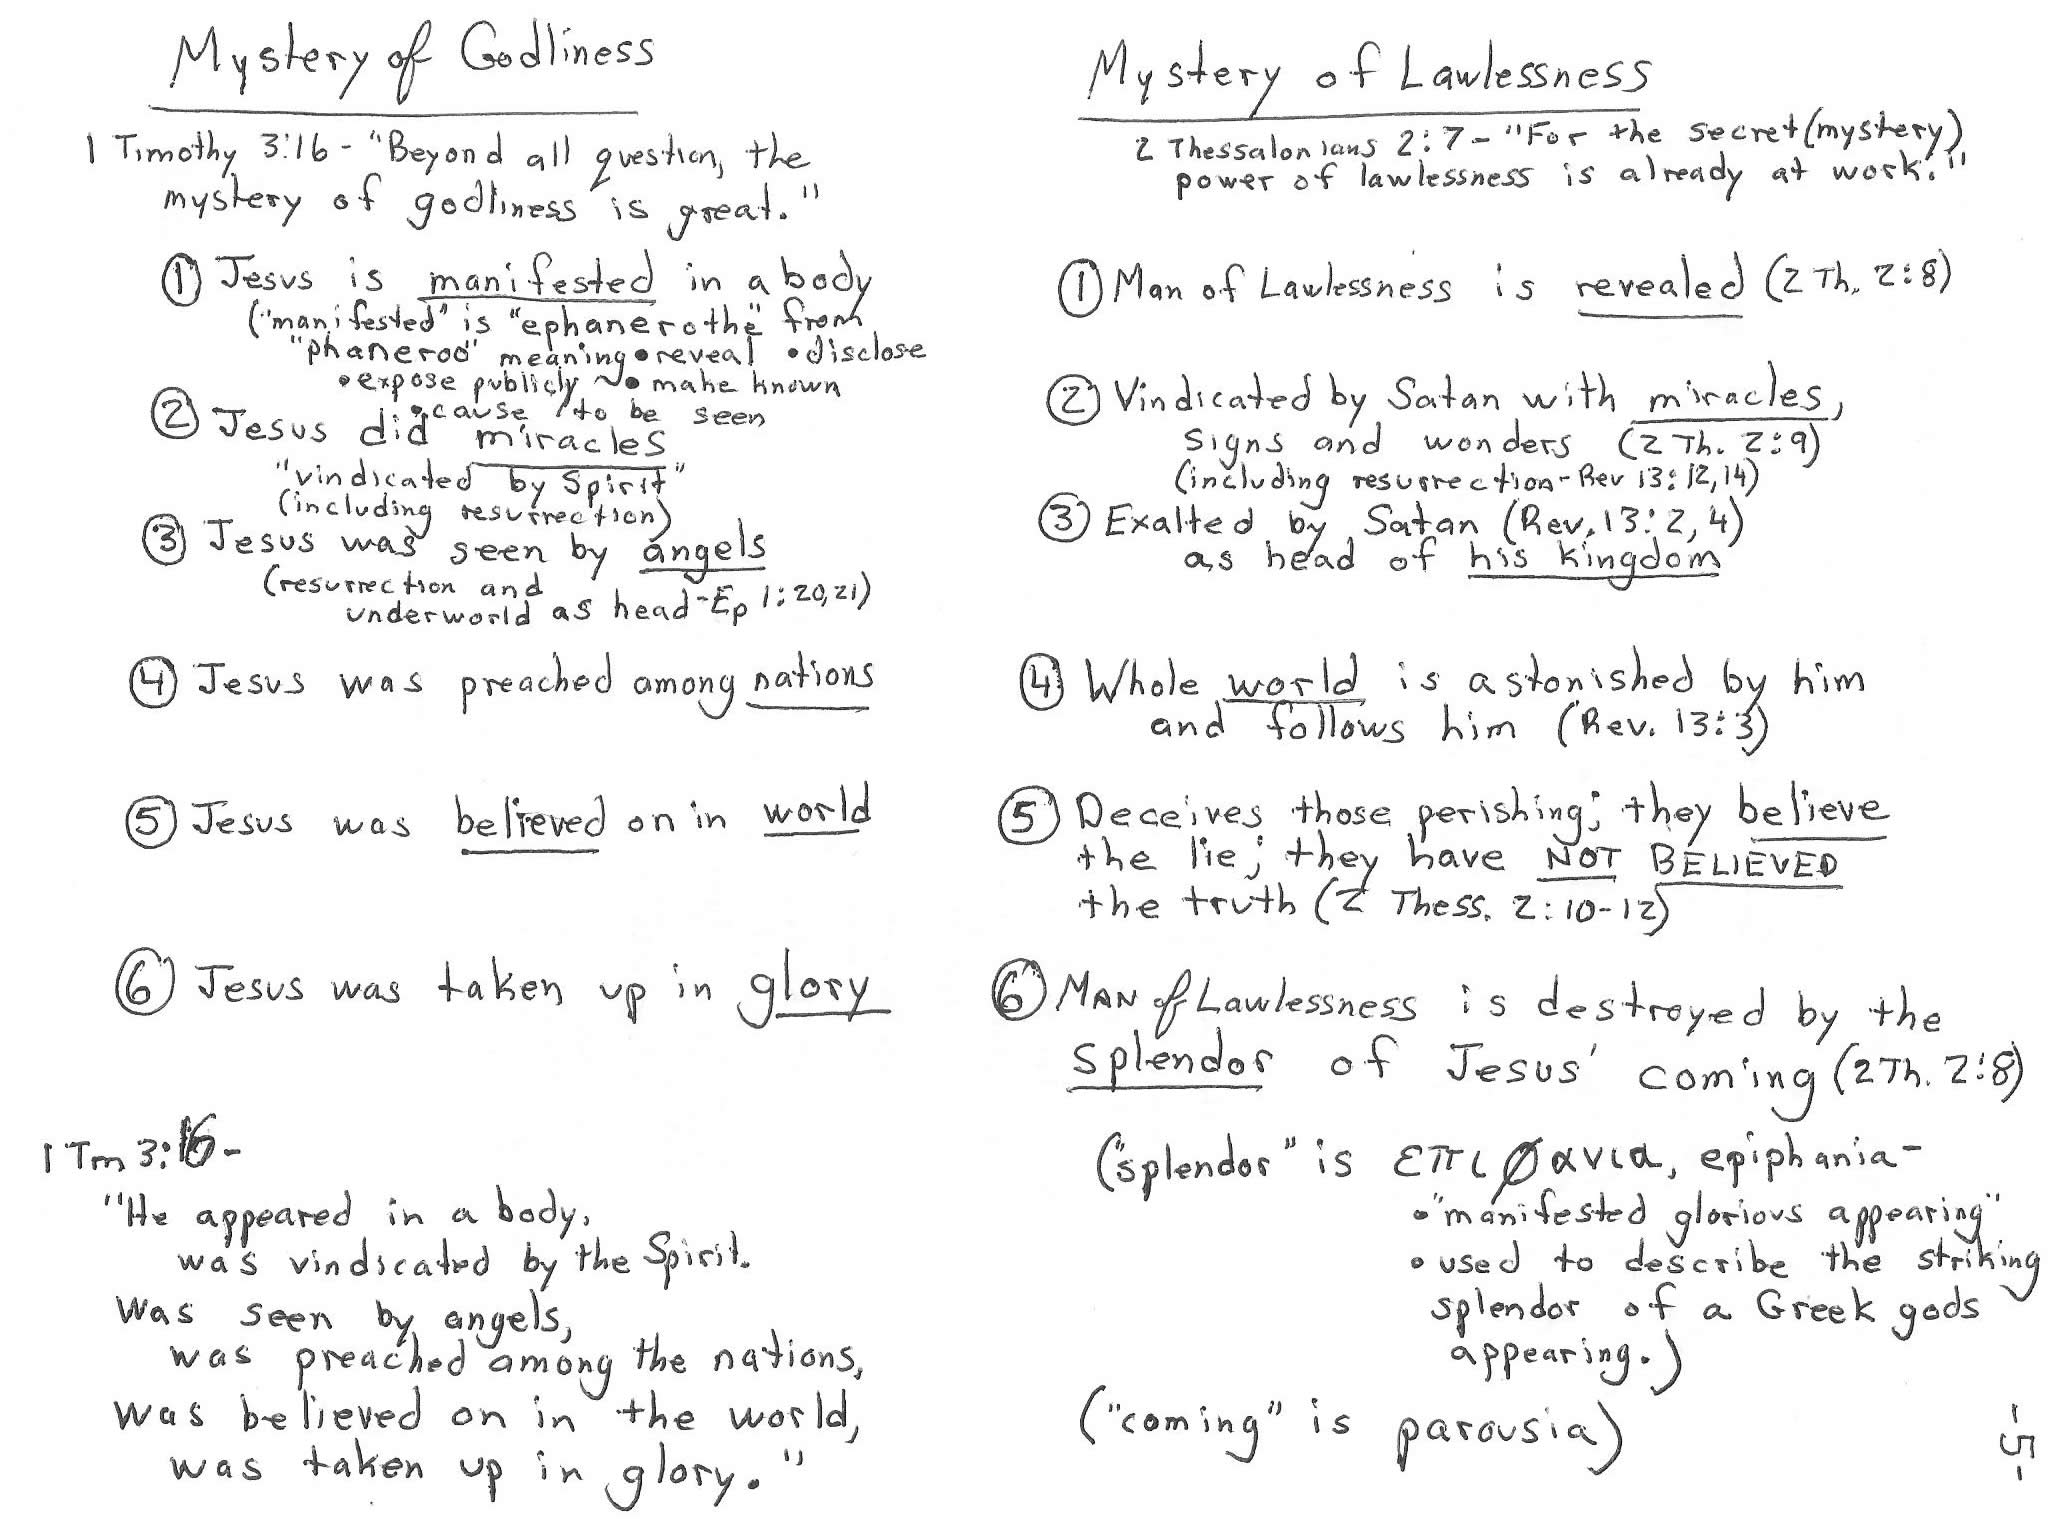 Mystery of Godliness
1 Timothy 3:16 - "Beyond all question, the
mystery of godliness is great."
① Jesus is manifested in a body
("manifested" is "ephanerothe" from
"phaneroo" meaning • reveal • disclose
• expose publicly ~ • make known
• cause to be seen
② Jesus did miracles
"vindicated by Spirit"
(including resurrection)
③ Jesus was seen by angels
(resurrection and
underworld as head - Ep 1:20,21)
④ Jesus was preached among nations
⑤ Jesus was believed on in world
⑥ Jesus was taken up in glory
1 Tm 3:16 -
"He appeared in a body,
was vindicated by the Spirit.
Was seen by angels,
was preached among the nations,
was believed on in the world,
was taken up in glory."
Mystery of Lawlessness
2 Thessalonians 2:7 - "For the secret (mystery)
power of lawlessness is already at work."
① Man of Lawlessness is revealed (2 Th. 2:8)
② Vindicated by Satan with miracles,
signs and wonders (2 Th. 2:9)
(including resurrection - Rev 13:12,14)
③ Exalted by Satan (Rev. 13:2,4)
as head of his kingdom
④ Whole world is astonished by him
and follows him (Rev. 13:3)
⑤ Deceives those perishing; they believe
the lie; they have NOT BELIEVED
the truth (2 Thess. 2:10-12)
⑥ MAN of Lawlessness is destroyed by the
splendor of Jesus' coming (2 Th. 2:8)
("splendor" is επιφανια, epiphania -
• "manifested glorious appearing"
• used to describe the striking
splendor of a Greek gods
appearing.)
("coming" is parousia)
-5-